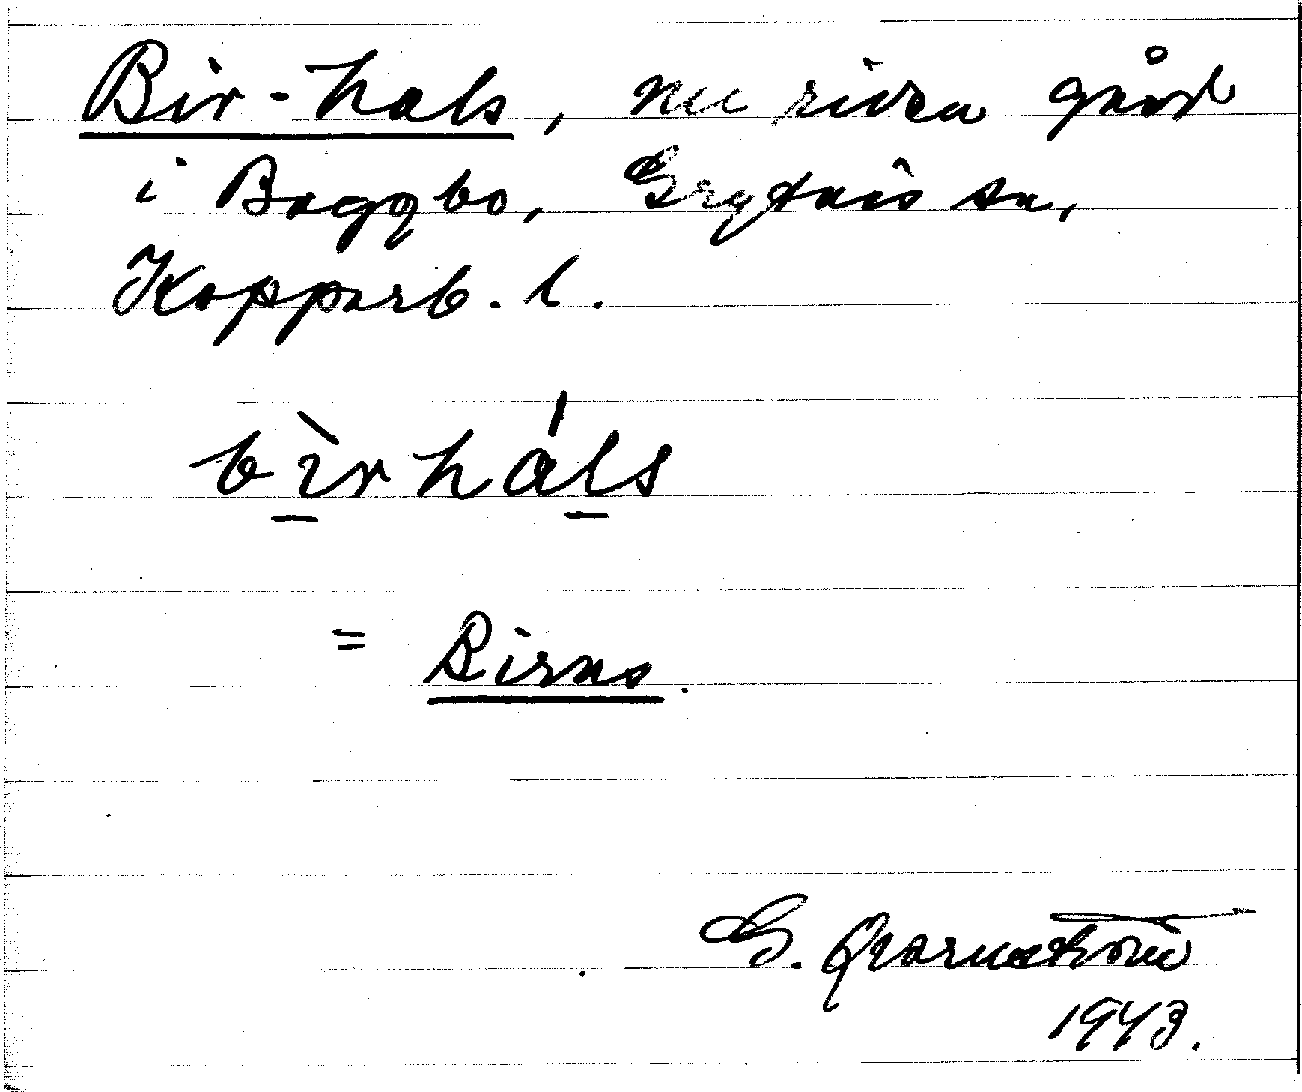 Bir-hals, nu riven gård
i Baggbo, Grytnäs sn,
Kopparb. l.
bìrháls
= Birns.
G. Qvarnström
1943.